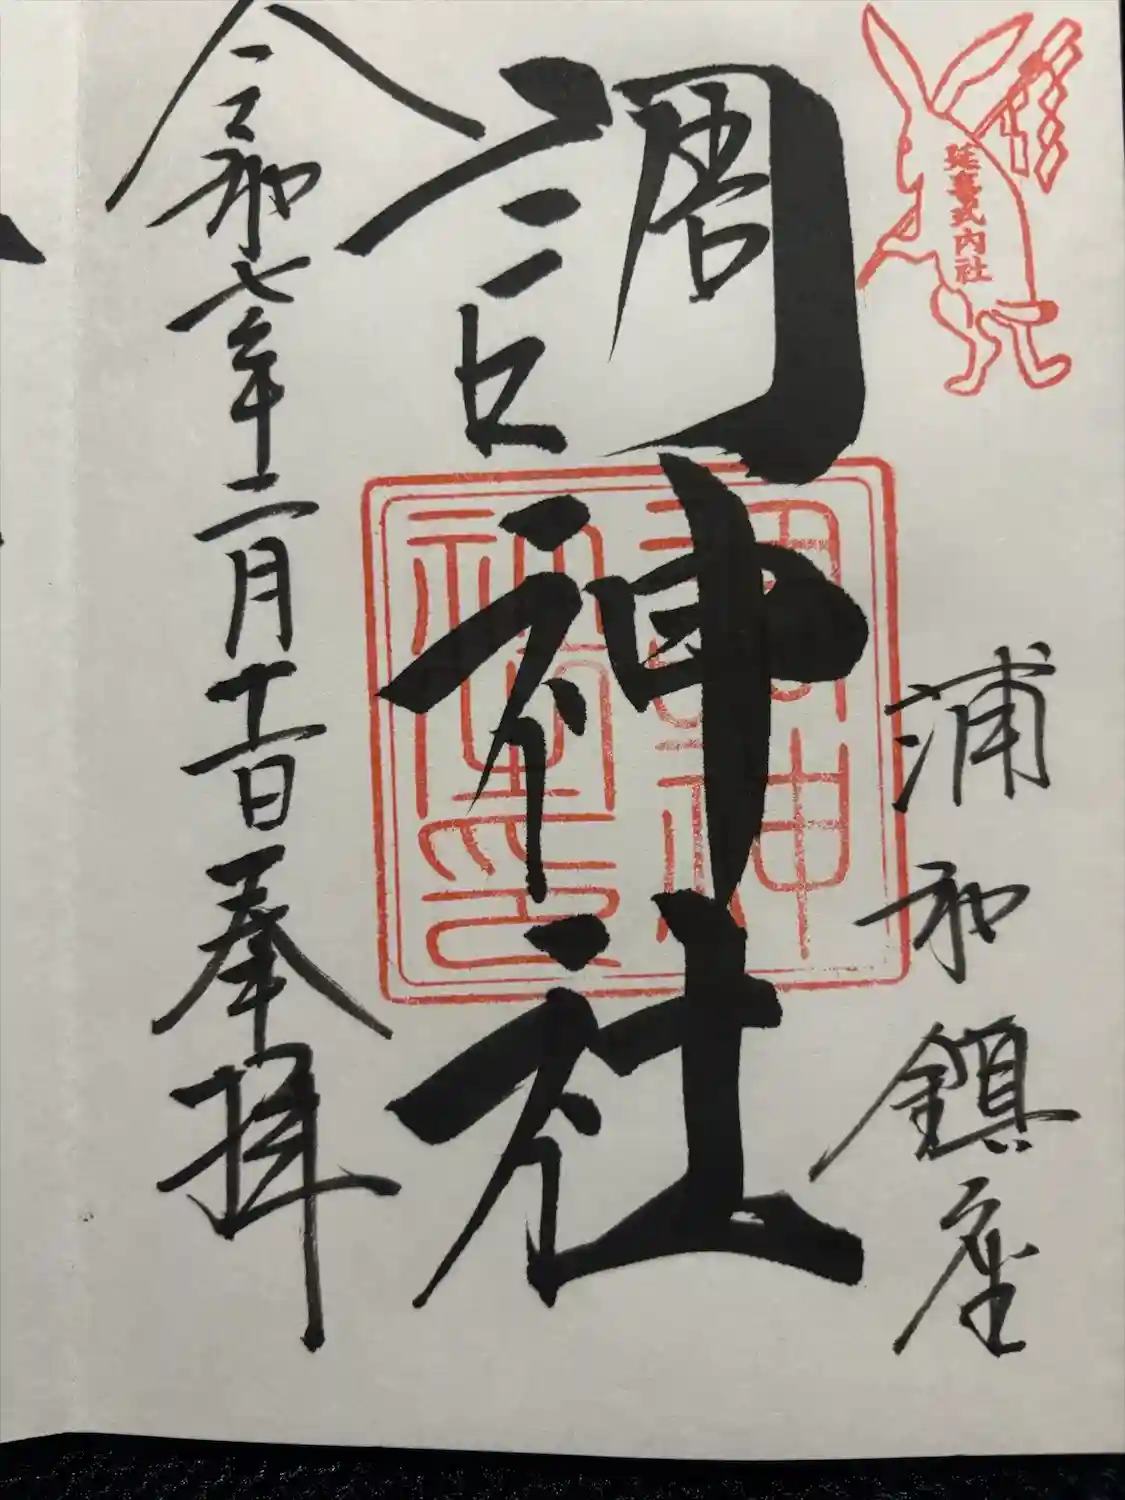 延喜式内社
浦和鎮座
調神社
令和七年二月十一日奉拝